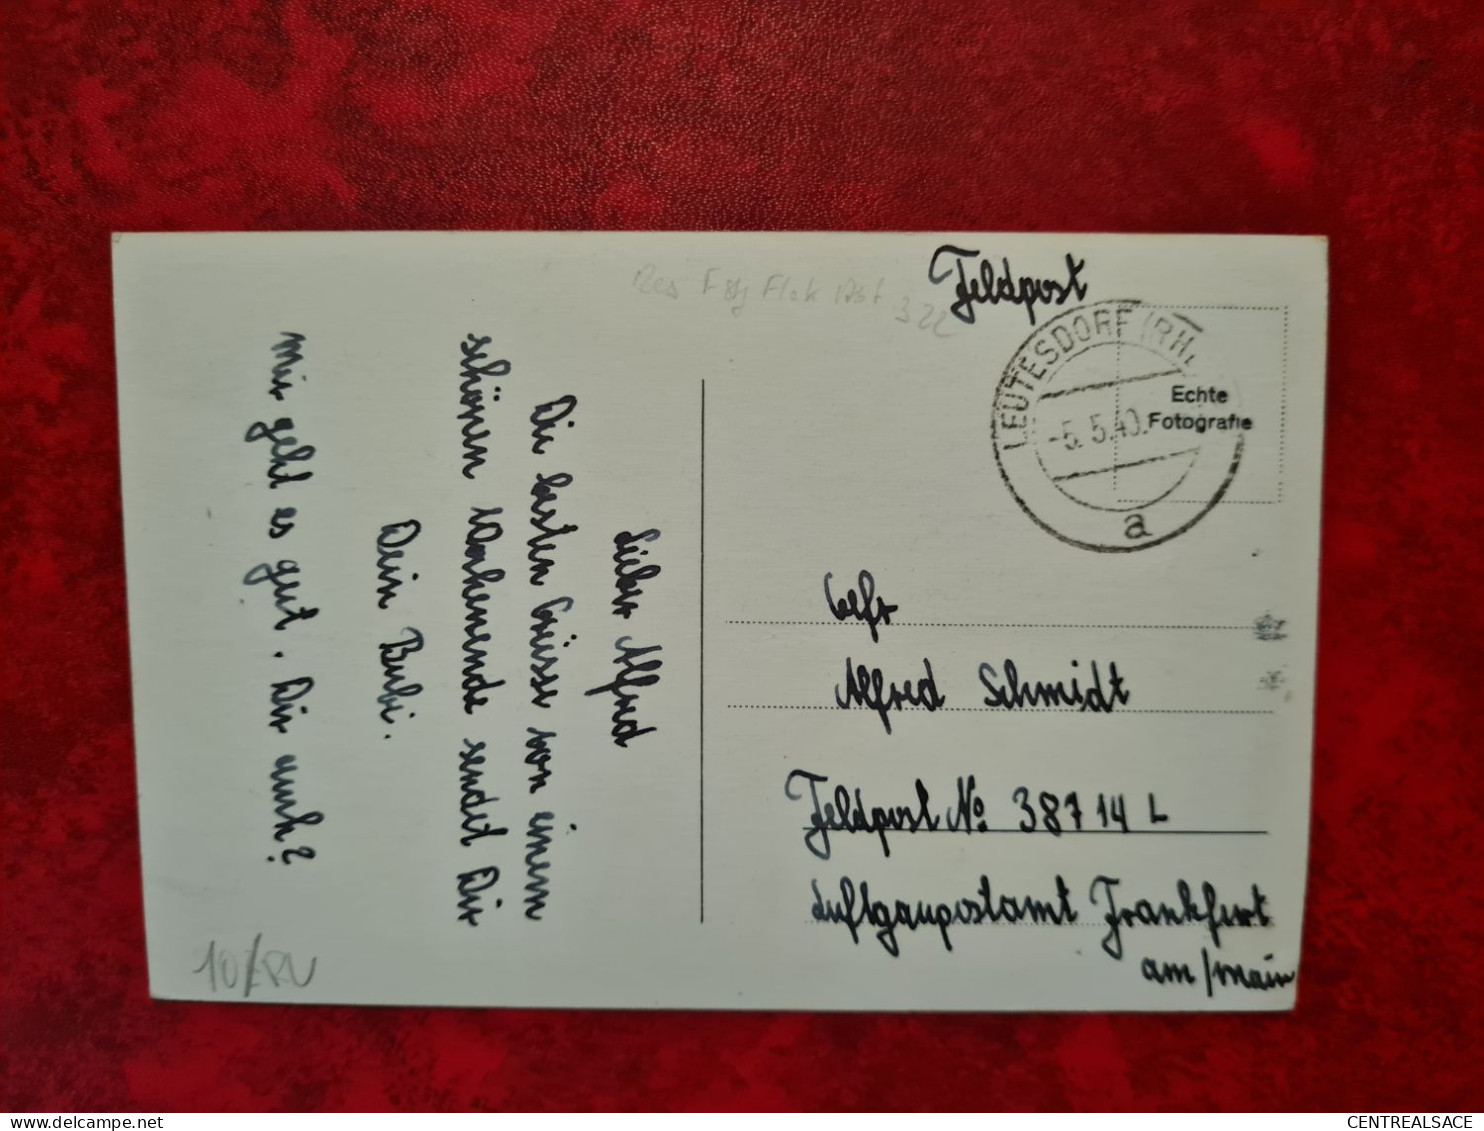 Feldpost
LEUTESDORF (RH.
-5.5.40.
a
Echte
Fotografie
322
Gefr
Alfred Schmidt
Feldpost No. 38714 L
Luftgaupostamt Frankfurt
am/Main
Lieber Alfred
Die besten Grüsse von einem
schönen Wochenende sendet Dir
Dein Bubi.
mir geht es gut. Dir auch?
10
delcampe.net
CENTREALSACE